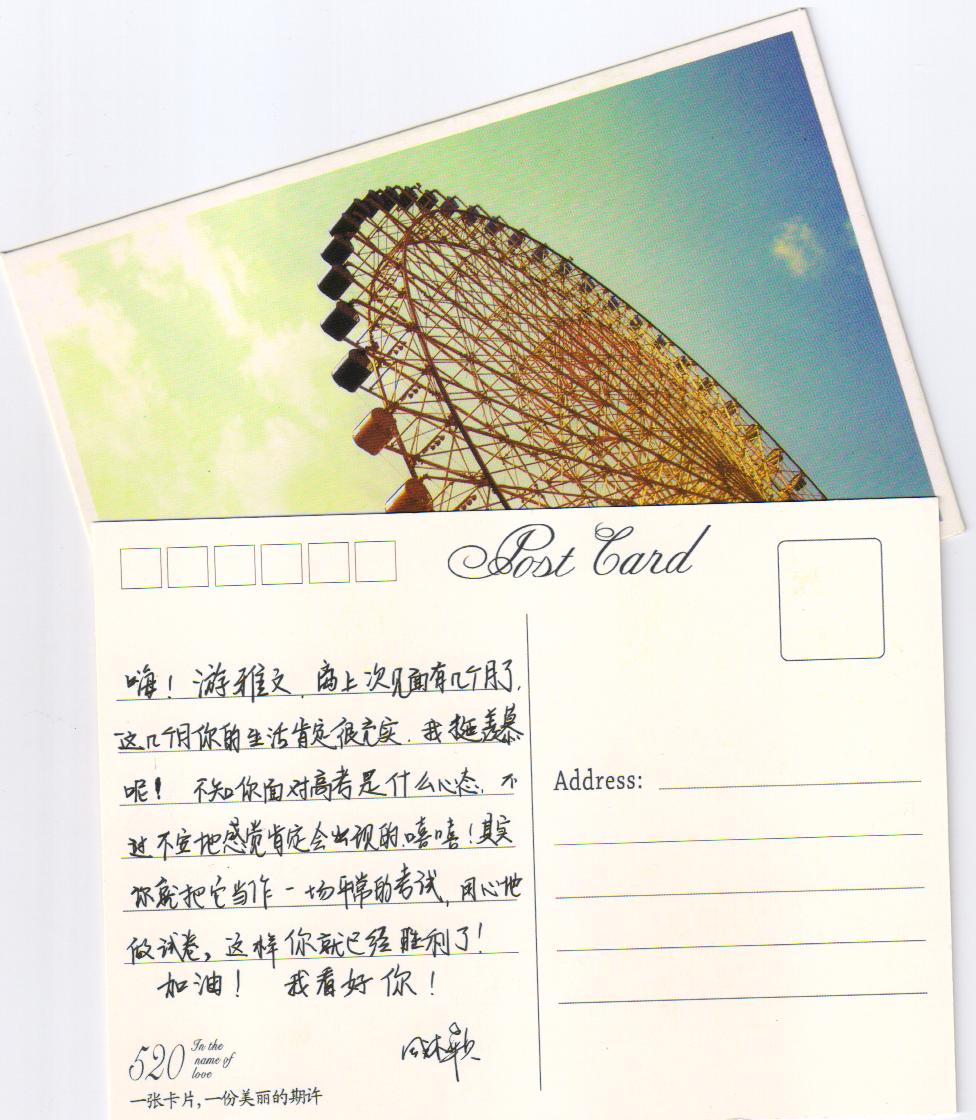 Post Card
嗨！游雅文，离上次见面有几个月了，
这几个月你的生活肯定很充实，我挺羡慕
呢！不知你面对高考是什么心态，不
过不安地感觉肯定会出现的，嘻嘻！其实
你就把它当作一场平常的考试，用心地
做试卷，这样你就已经胜利了！
加油！我看好你！
520 In the
name of
love
一张卡片，一份美丽的期许
Address: